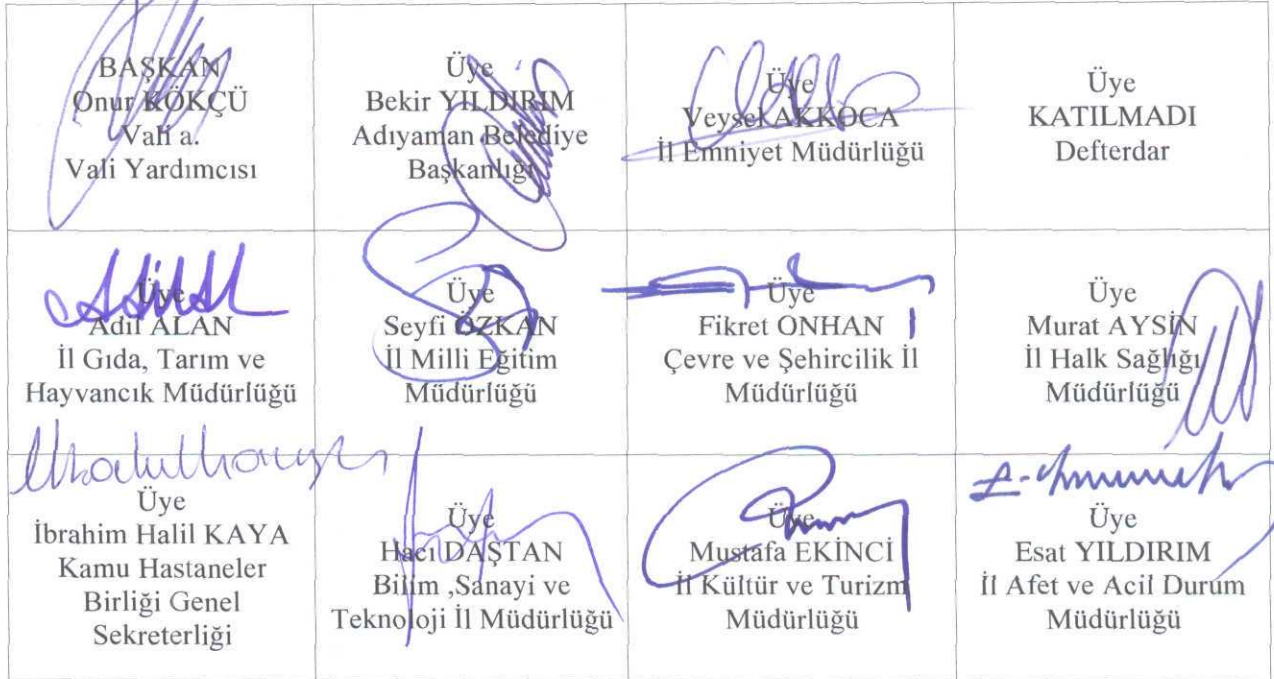 BAŞKAN
Onur KÖKÇÜ
Vali a.
Vali Yardımcısı
Üye
Bekir YILDIRIM
Adıyaman Belediye
Başkanlığı
Üye
Veysel AKKOCA
İl Emniyet Müdürlüğü
Üye
KATILMADI
Defterdar
Üye
Adil ALAN
İl Gıda, Tarım ve
Hayvancık Müdürlüğü
Üye
Seyfi ÖZKAN
İl Milli Eğitim
Müdürlüğü
Üye
Fikret ONHAN
Çevre ve Şehircilik İl
Müdürlüğü
Üye
Murat AYSİN
İl Halk Sağlığı
Müdürlüğü
Üye
İbrahim Halil KAYA
Kamu Hastaneler
Birliği Genel
Sekreterliği
Üye
Hacı DAŞTAN
Bilim ,Sanayi ve
Teknoloji İl Müdürlüğü
Üye
Mustafa EKİNCİ
İl Kültür ve Turizm
Müdürlüğü
Üye
Esat YILDIRIM
İl Afet ve Acil Durum
Müdürlüğü